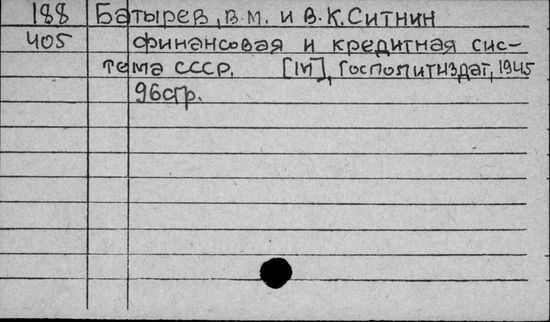 188 Батырев, В.М. и В.К.Ситнин
405 финансовая и кредитная сис-
тема СССР. [М], Госполитиздат, 1945
96стр.